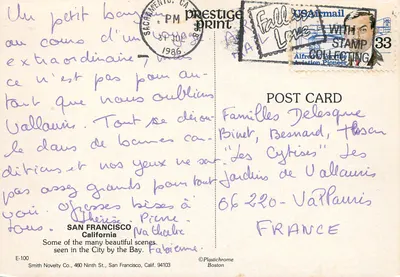 Un petit bonjour
au cours d'un
extraordinaire
ce n'est pas pour au-
tant que nous oublions
Vallauris. Tout se dérou-
le dans de bonnes con-
ditions et nos yeux ne sont
pas assez grands pour tout
voir. Grosses bises à
tous. Thérèse Pierre
Fabienne.
SAN FRANCISCO
California
Some of the many beautiful scenes
seen in the City by the Bay.
E-100
Smith Novelty Co., 460 Ninth St., San Francisco, Calif. 94103
prestige
print
SACRAMENTO, CA
PM
1986
Fall in
Love
WITH
STAMP
COLLECTING
USAirmail
33
POST CARD
Familles Delesque
Binet, Besnard,
"Les Cytises" Les
Jardins de Vallauris
06220 - Vallauris
FRANCE
©Plastichrome
Boston